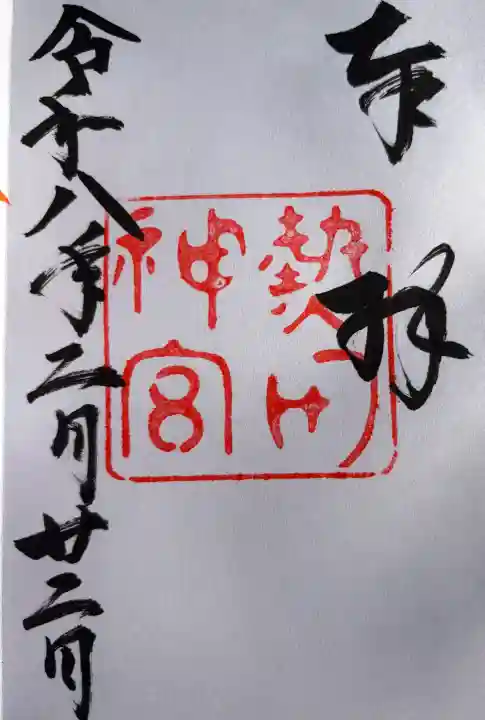 奉拝
熱田
神宮
令和八年二月廿二日